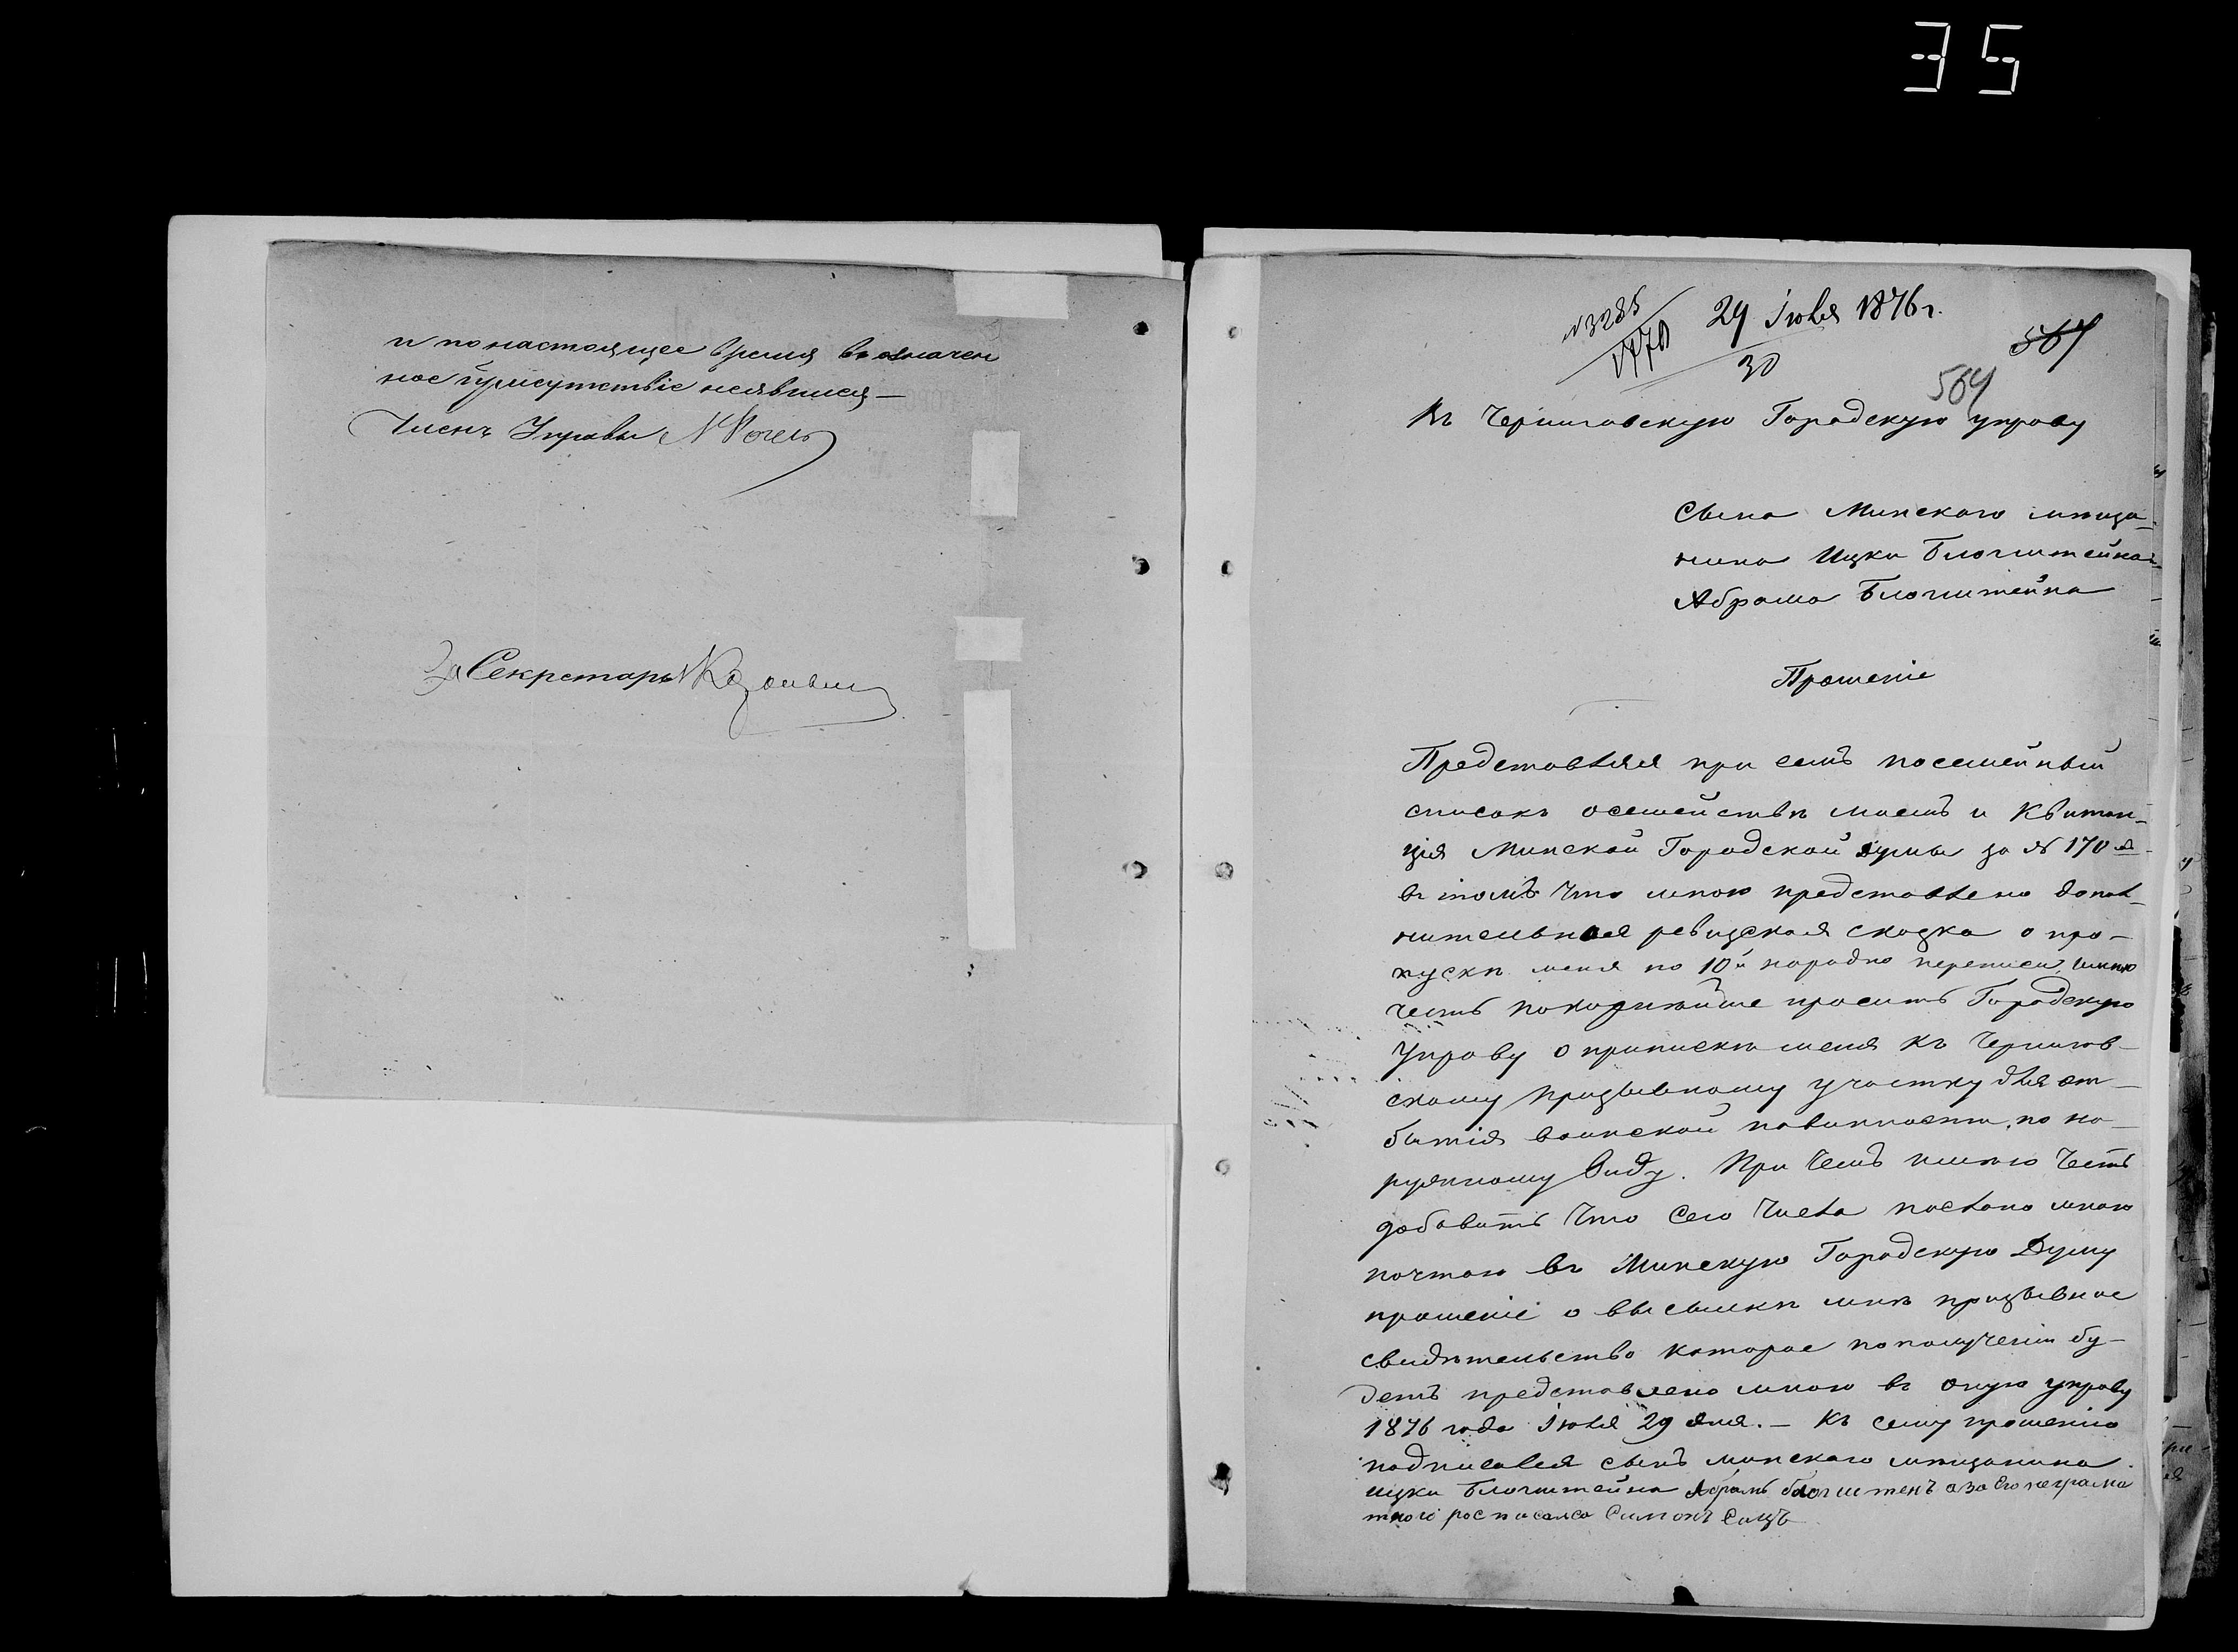 35
и по настоящее время въ означен
ное присутствіе неявился —
Членъ Управы
За Секретарь
№3285
29 Іюля 1876 г.
30
564
564
Въ Черниговскую Городскую управу
Сына Минскаго мѣща-
нина Ицки Блогштейна-
Абрама Блогштейна
Прошеніе
Представляя при семъ посемейный
списокъ о семействѣ моемъ и Квитан-
ція Минской Городской думы за № 170 м
въ томъ что мною представлено допол-
нительная ревизская сказка о про-
пускѣ меня по 10й народно переписи, имѣю
честь покорнѣйше просить Городскую
Управу о припискѣ меня къ Чернигов-
скому призывному участку для от-
бытія воинской повинности, по на-
ружному виду. При чемъ имѣю честь
добавить что сего числа послано мною
почтою въ Минскую Городскую Думу
прошеніе о высылкѣ мнѣ призывное
свидѣтельство которое по полученіи бу-
детъ представлено мною въ оную управу
1876 года Іюля 29 дня. — Къ сему прошенію
подписался сынъ минскаго мѣщанина
Ицки Блогштейна Абрамъ Блогштенъ а за его неграма
тного росписался Симонъ